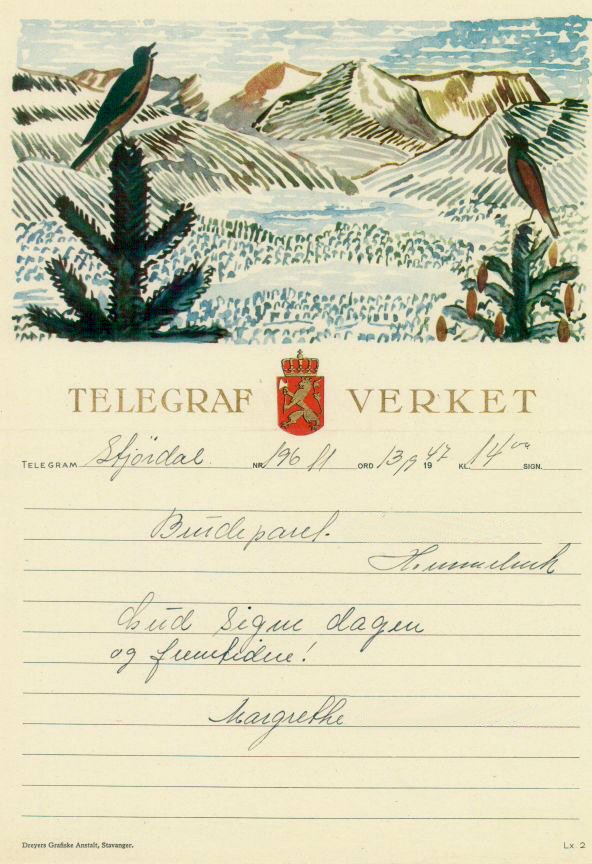 TELEGRAF VERKET
TELEGRAM Stjördal NR. 196 11 ORD 13/9 1947 KL. 14 00 SIGN.
Brudeparet.
Himmelvik
Gud signe dagen
og fremtiden!
Margrethe
Dreyers Grafiske Anstalt, Stavanger. Lx. 2